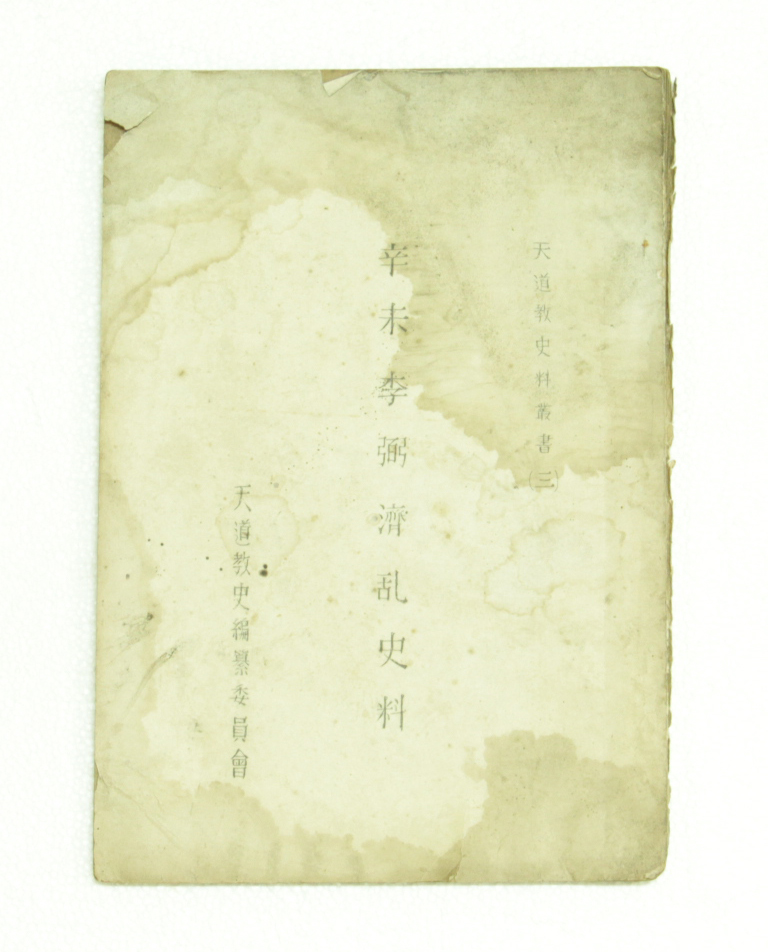 天道教史料叢書(三)
辛未李弼濟乱史料
天道教史編纂委員會